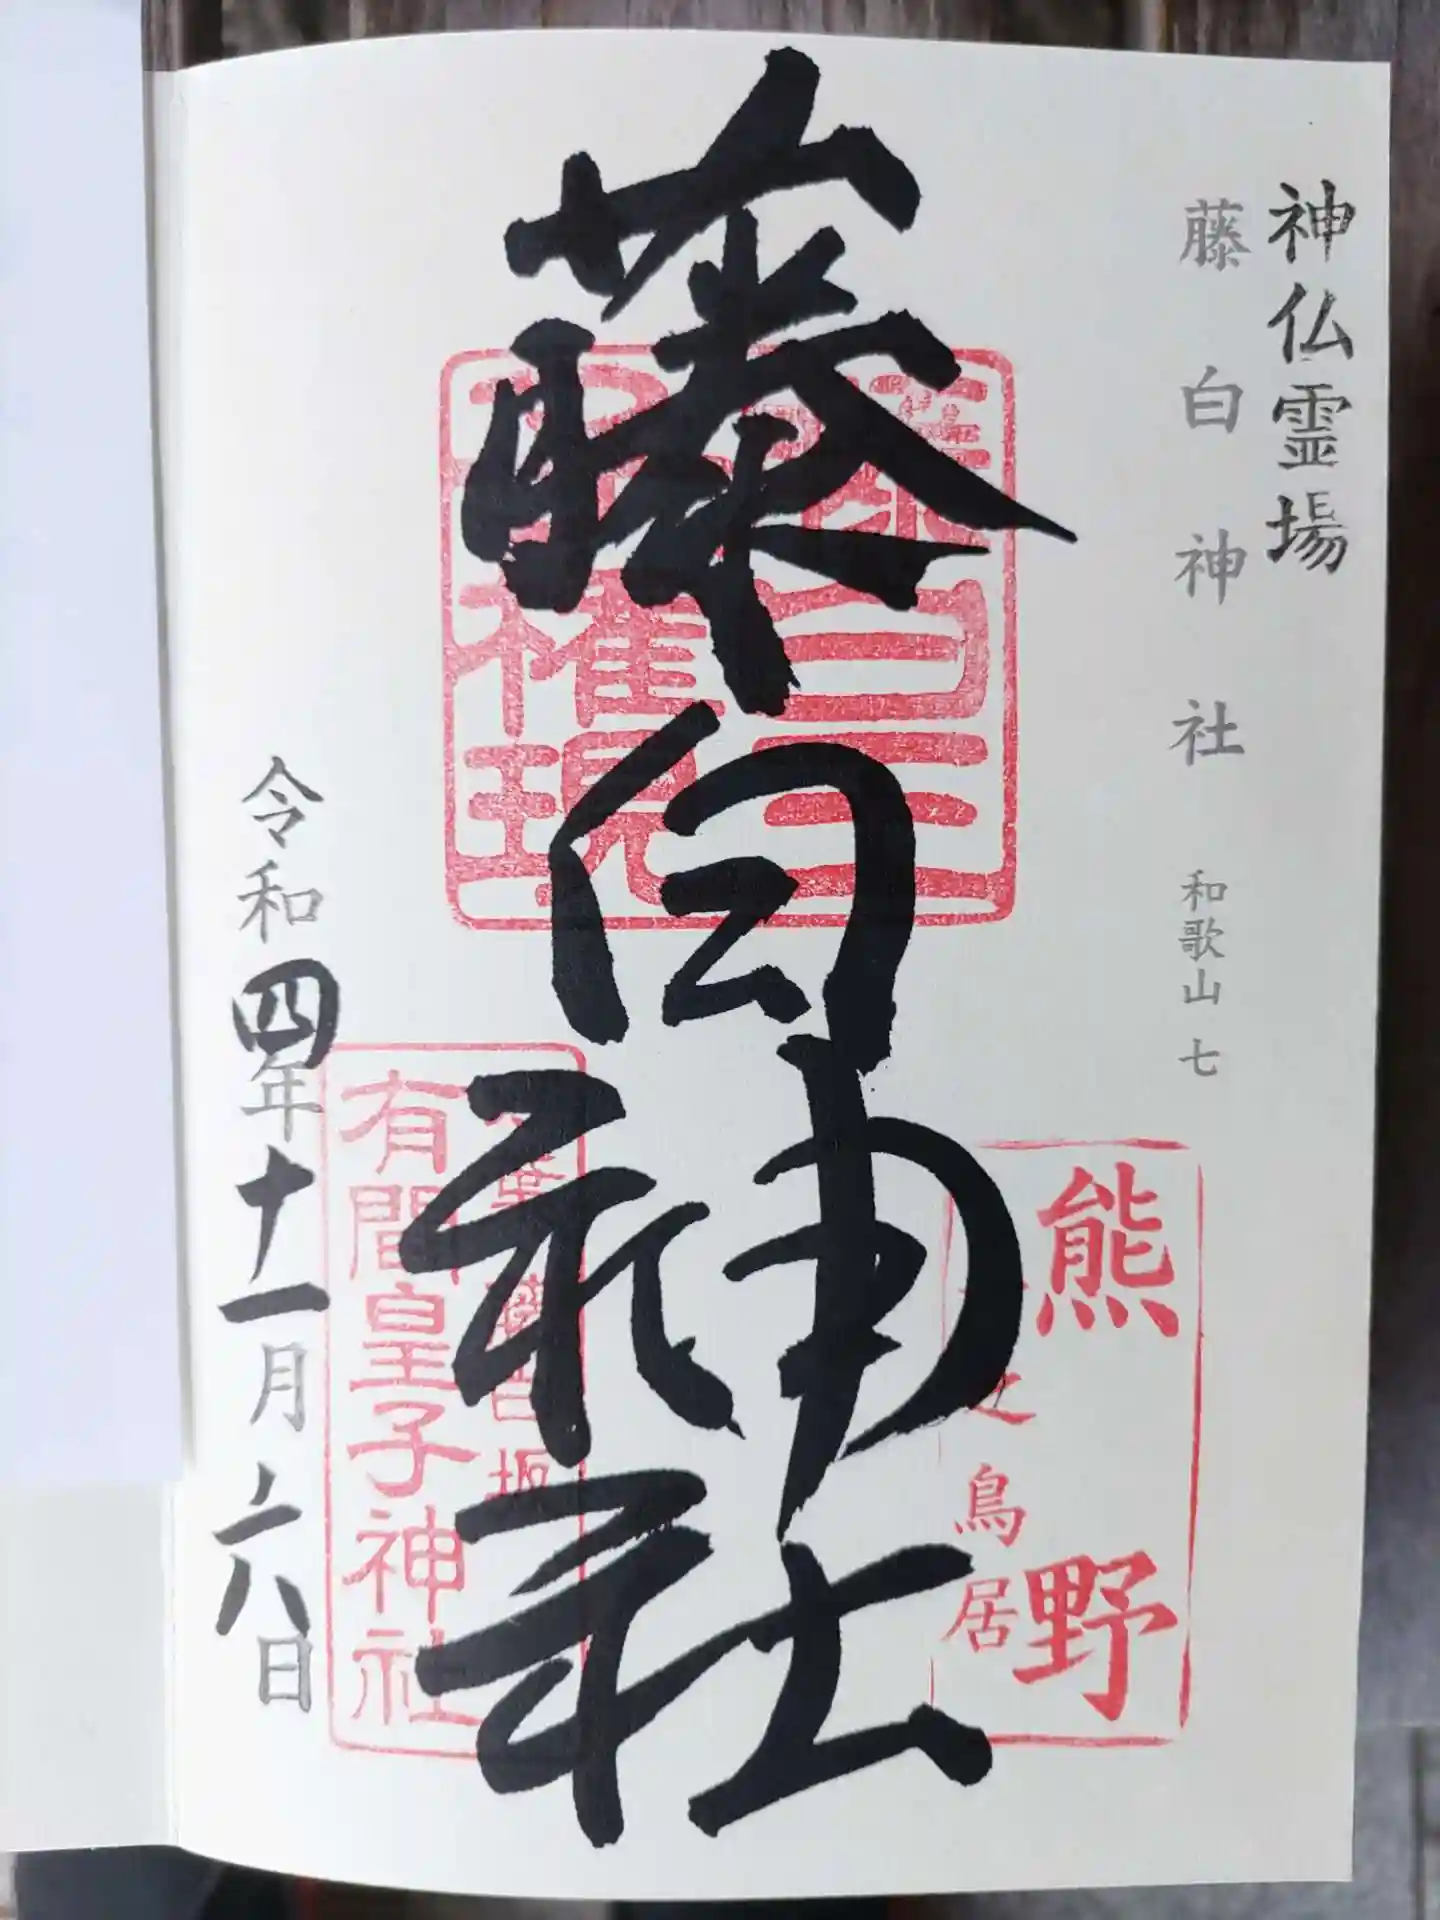 神仏霊場
藤白神社 和歌山 七
熊野
一之鳥居
藤白神社
藤白王
子権現
藤白坂
有間皇子神社
令和四年十一月六日